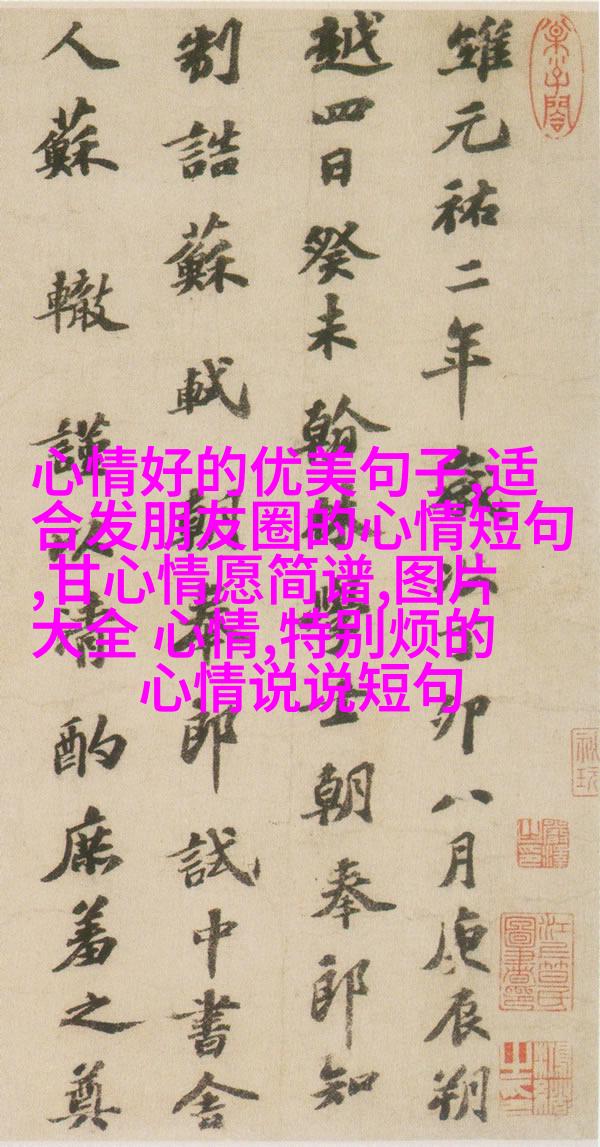 維元祐二年歲次丁卯八月庚辰朔
越四日癸未翰林學士朝奉郎知
制誥蘇軾朝奉郎試中書舍
人蘇轍謹以清酌庶羞之奠
心情好的优美句子,适
合发朋友圈的心情短句
,甘心情愿简谱,图片
大全 心情,特别烦的
心情说说短句